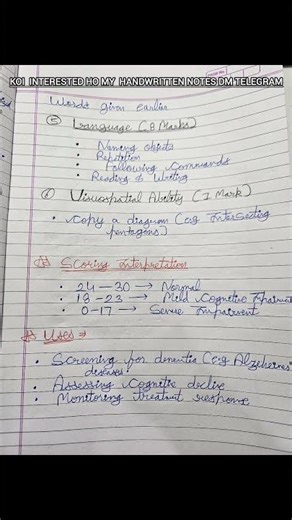 KOI INTERESTED HO MY HANDWRITTEN NOTES DM TELEGRAM
Words given earlier
(e) Language (8 Marks)
• Naming objects
• Repetition
• Following Commands
• Reading & Writing
(f) Visuospatial Ability (1 Mark)
• Copy a diagram (eg Intersecting
pentagons)
# Scoring Interpretation
• 24 – 30 → Normal
• 18 – 23 → Mild Cognitive Impairment
• 0 – 17 → Severe Impairment
# Uses →
• Screening for dementia (eg Alzheimer's
disease)
• Assessing Cognitive decline
• Monitoring treatment response